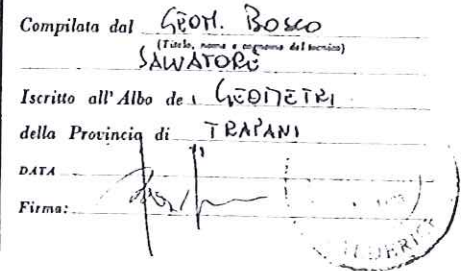 Compilata dal GEOM. BOSCO
(Titolo, nome e cognome del tecnico)
SALVATORE
Iscritto all'Albo de i GEOMETRI
della Provincia di TRAPANI
DATA
Firma: